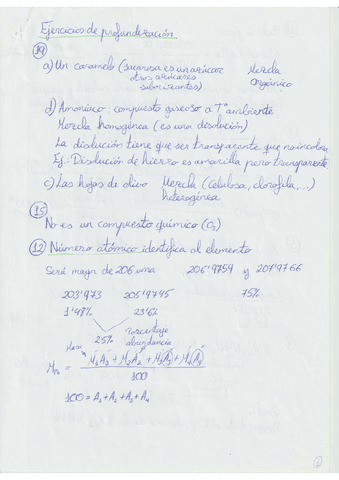 Ejercicios de profundización
19
a) Un caramelo (sacarosa es un azúcar Mezcla
otros azúcares Orgánico
saborizantes)
d) Amoniaco: compuesto gaseoso a Tª ambiente
Mezcla homogénea (es una disolución)
La disolución tiene que ser transparente que no incolora
Ej: Disolución de hierro es amarilla pero transparente
c) Las hojas de olivo Mezcla (celulosa, clorofila,...)
heterogénea
15
No es un compuesto químico (O₃)
12 Número atómico identifica al elemento
Será mayor de 206 uma 206'9759 y 207'9766
203'973 205'9745 75%
1'48% 23'6%
25% Porcentaje
abundancia
Masa
M₁A₁ + M₂A₂ + M₃A₃ + M₄A₄
M Pb =
100
100 = A₁ + A₂ + A₃ + A₄